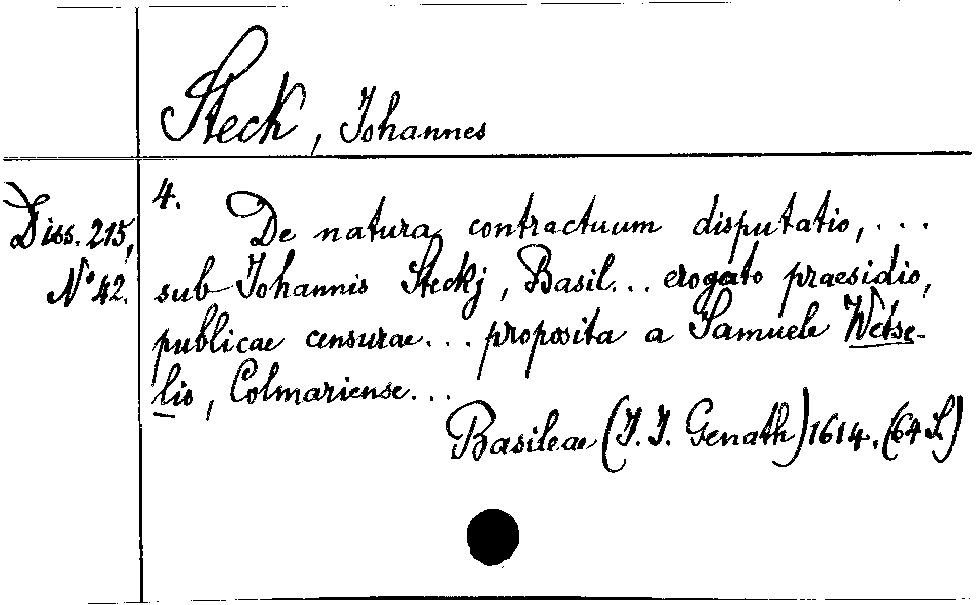 Steck, Johannes
Diss. 215,
No 42.
4.
De natura contractuum disputatio, ...
sub Johannis Steckj, Basil... erogato praesidio,
publicae censurae... proposita a Samuele Wetse-
lio, Colmariense...
Basileae (J. J. Genath) 1614. (64 S.)